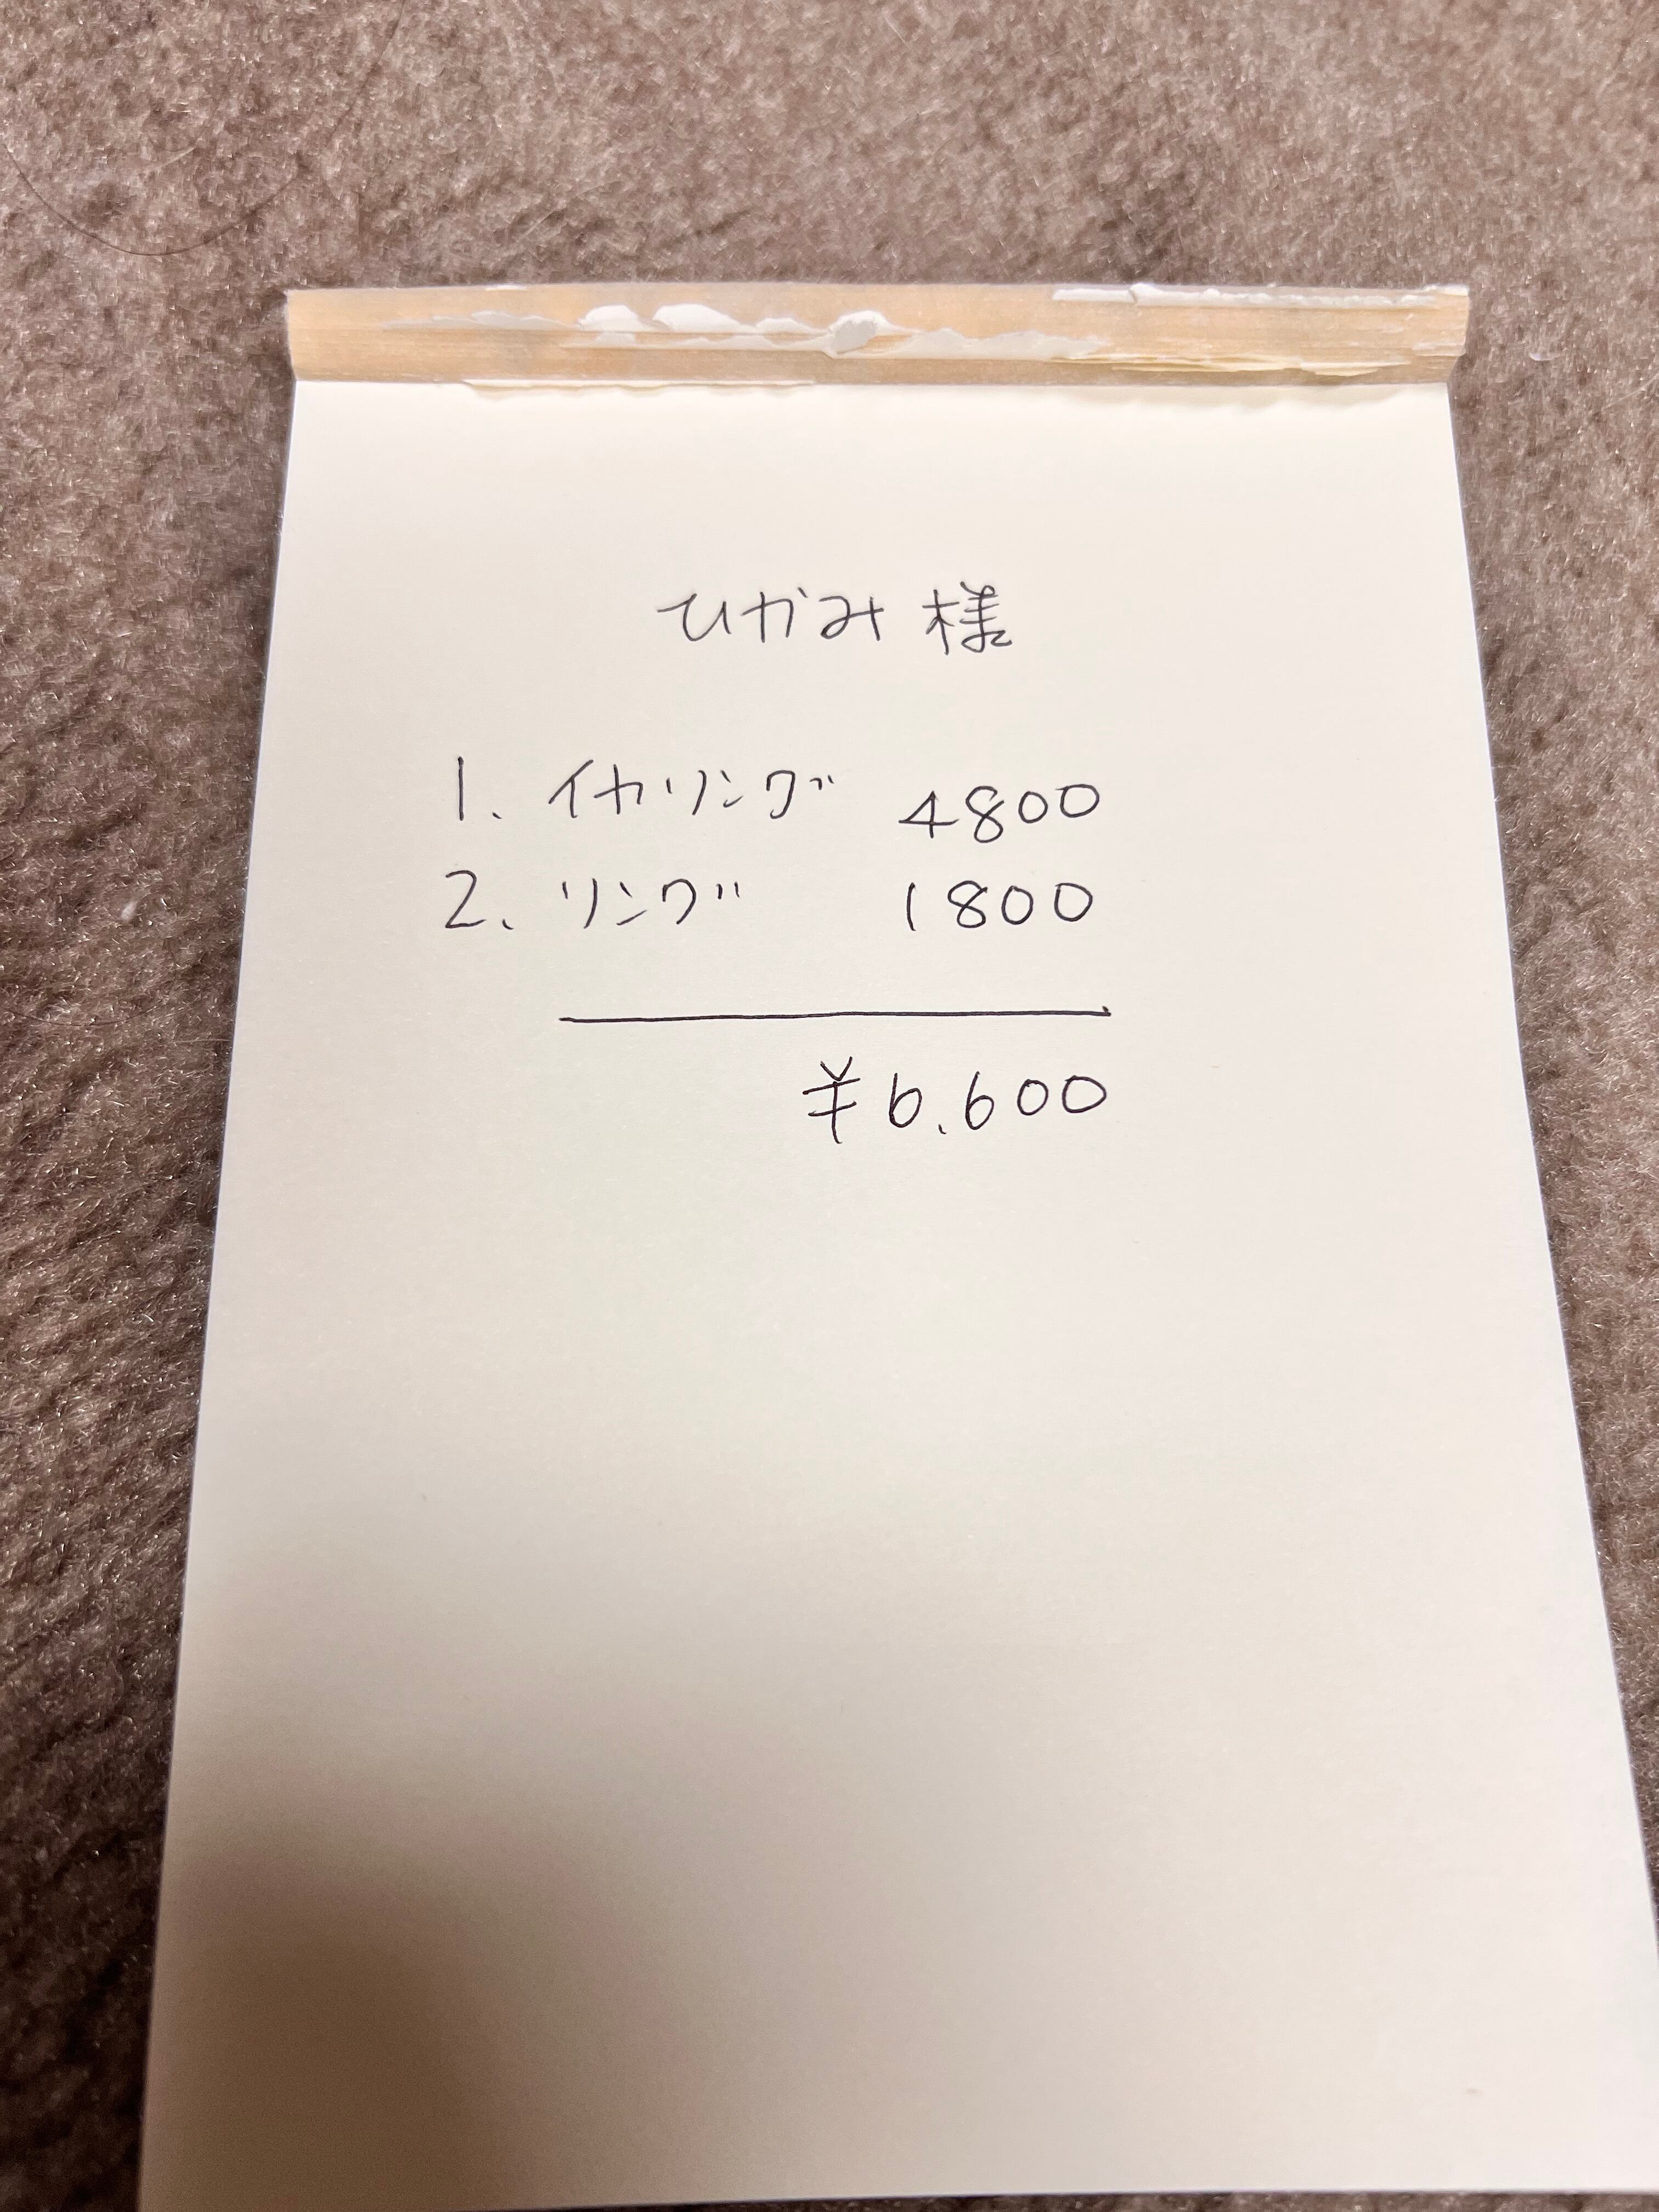 ひかみ 様
1. イヤリング 4800
2. リング 1800
¥6.600